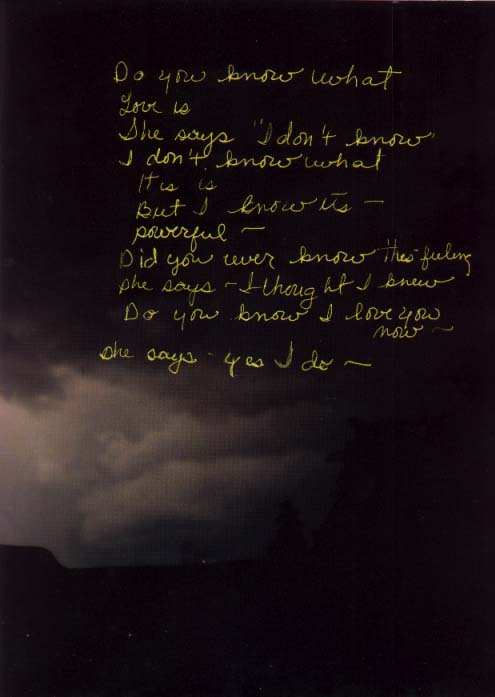 Do you know what
Love is
She says "I don't know"
I don't know what
It is is
But I know its —
powerful ~
Did you ever know this feeling
she says - I thought I knew
Do you know I love you
now ~
she says - yes I do ~